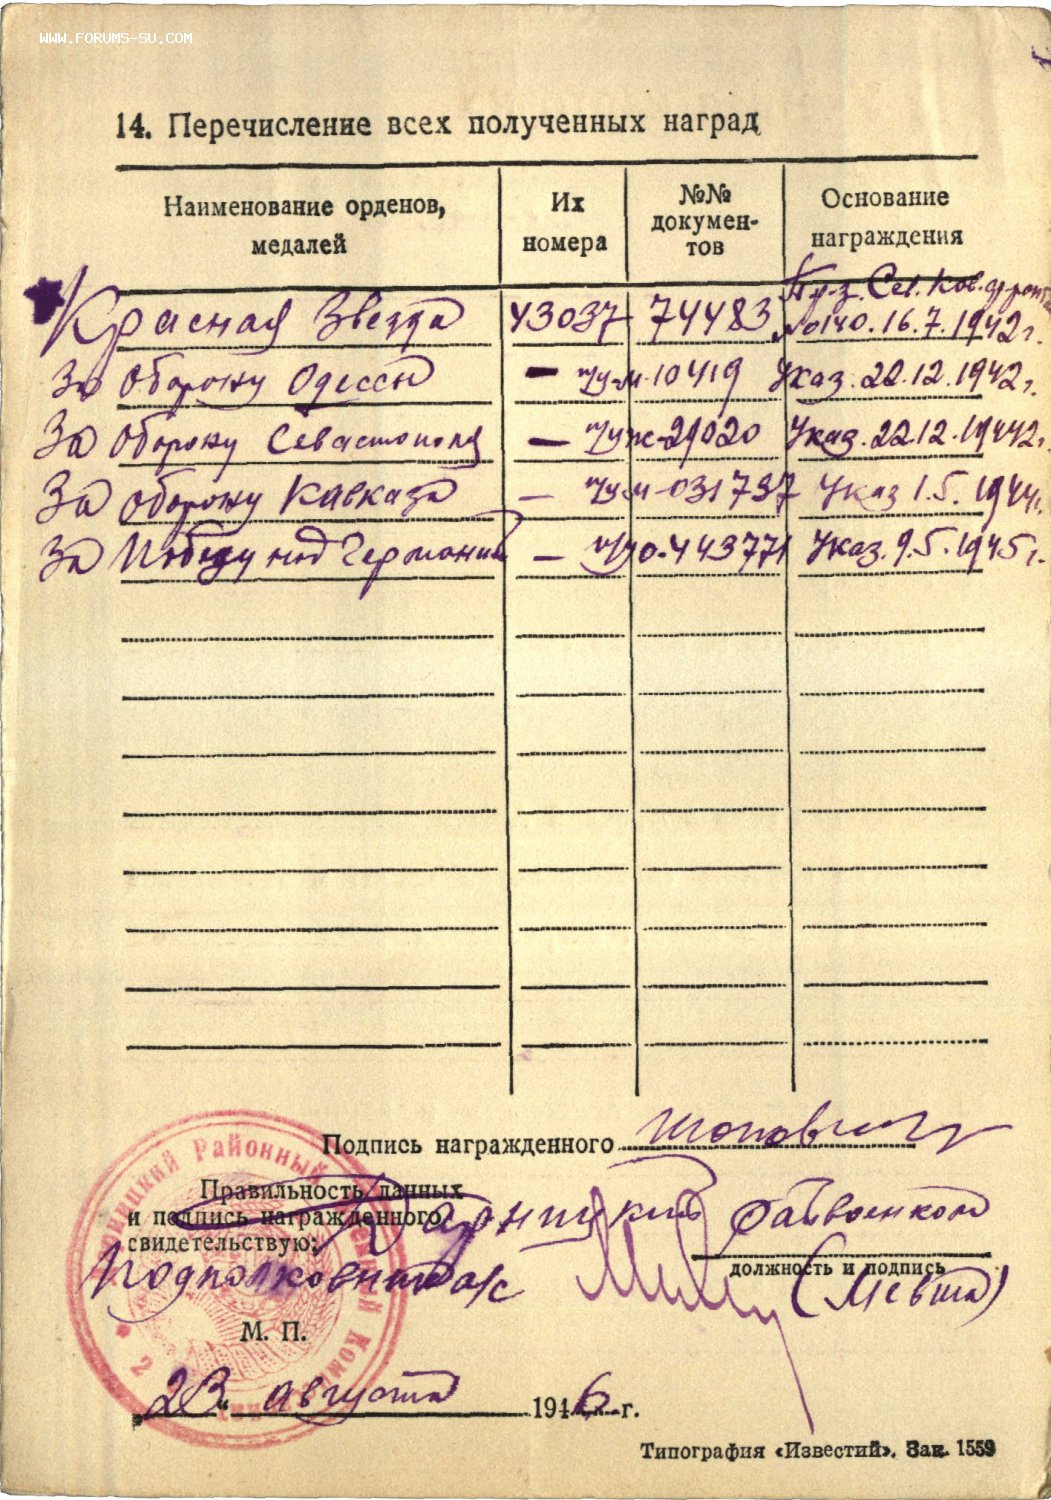 WWW.FORUMS-SU.COM
14. Перечисление всех полученных наград
Наименование орденов, медалей
Их номера
№№ докумен-тов
Основание награждения
Красная Звезда 43037 74483 Пр-з. Сев. Кав. фронт №0140. 16.7.1942г.
За Оборону Одессы – 10419 Указ. 22.12.1942г.
За Оборону Севастополя – 29020 Указ. 22.12.1942г.
За Оборону Кавказа – 031737 Указ 1.5.1944г.
За Победу над Германией – 443771 Указ. 9.5.1945г.
Подпись награжденного
Правильность данных
и подпись награжденного
свидетельствую:
Райвоенком
Подполковник а/с
должность и подпись
М. П.
23 августа 1946 г.
Районный
2
Типография «Известий». Зак. 1559